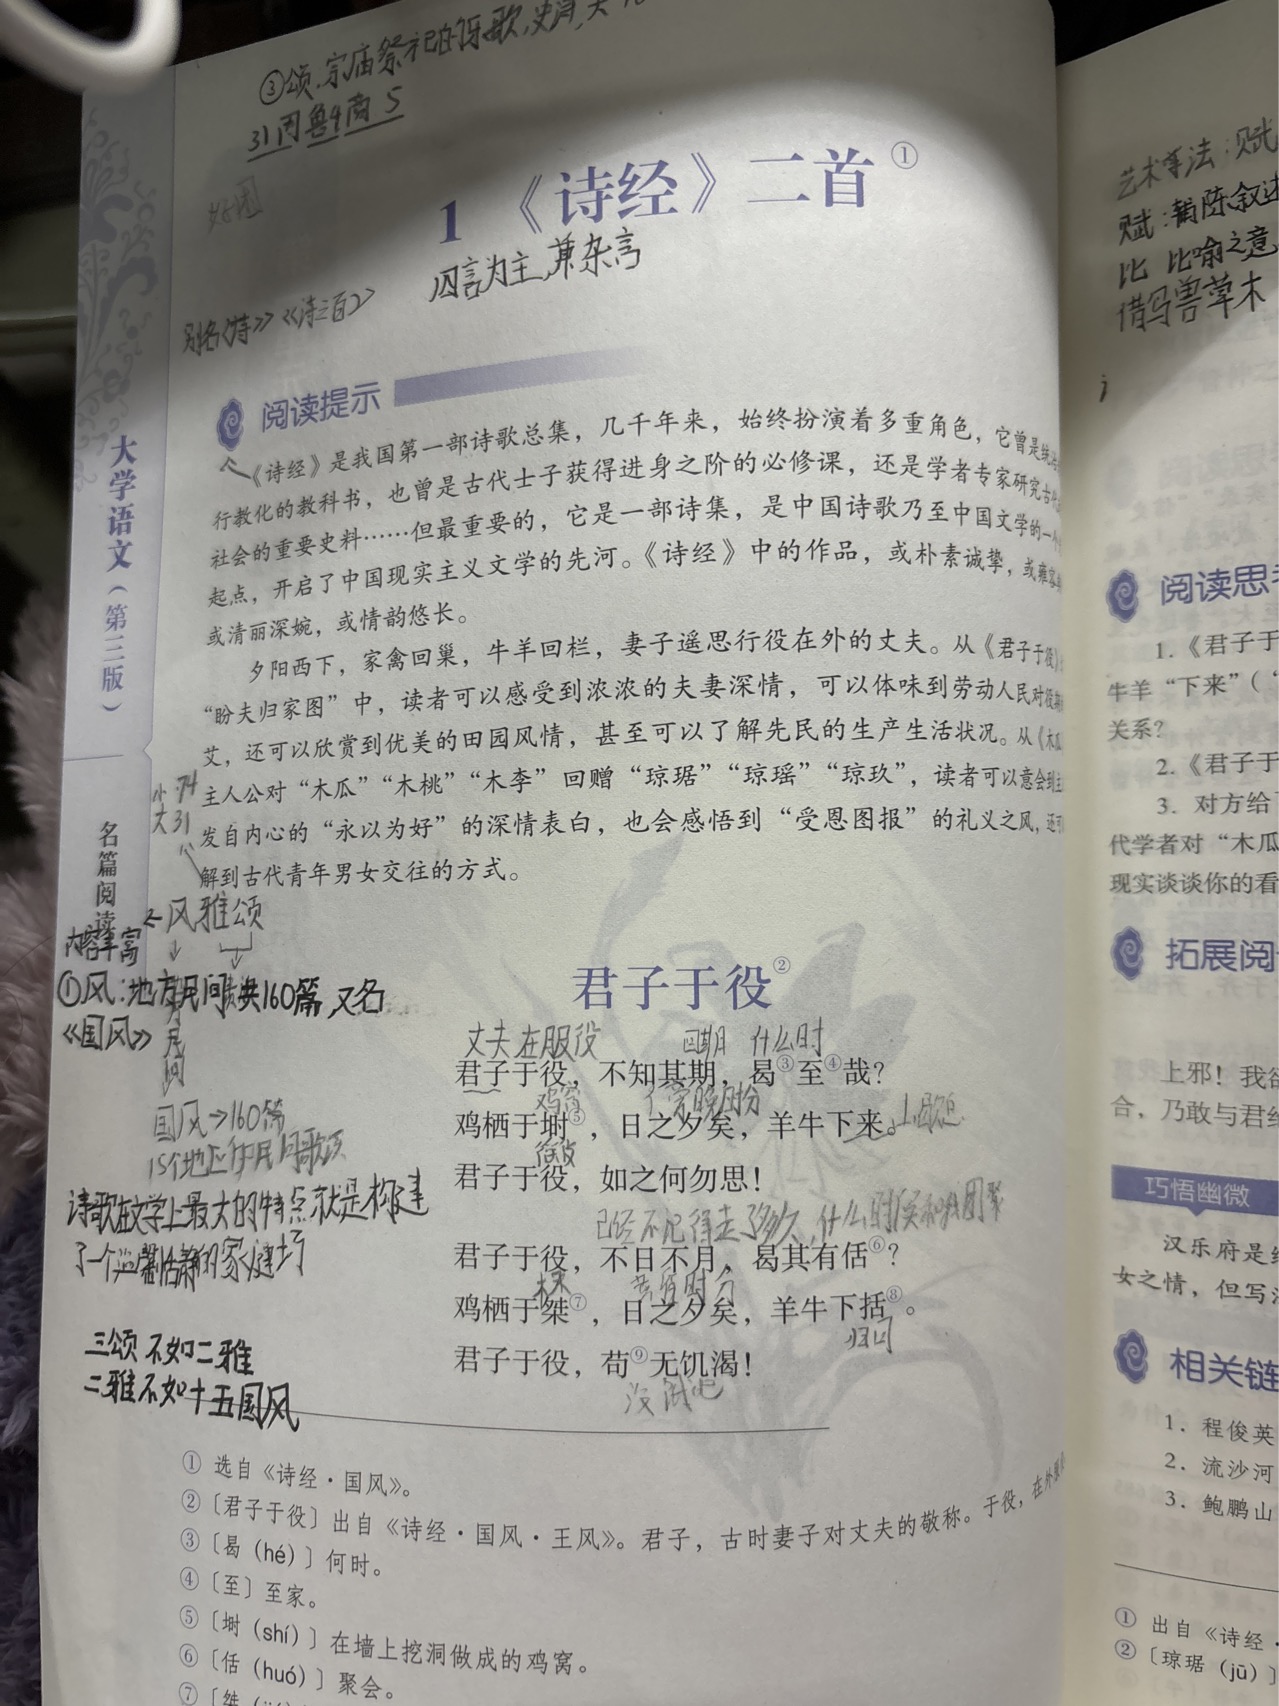 ③颂:宗庙祭祀的乐歌,史诗,
31周鲁4商5
1 《诗经》二首①
四言为主,兼杂言
别名《诗》《诗三百》
阅读提示
《诗经》是我国第一部诗歌总集，几千年来，始终扮演着多重角色，它曾是统治
行教化的教科书，也曾是古代士子获得进身之阶的必修课，还是学者专家研究古
社会的重要史料……但最重要的，它是一部诗集，是中国诗歌乃至中国文学的一个
起点，开启了中国现实主义文学的先河。《诗经》中的作品，或朴素诚挚，或雍容
或清丽深婉，或情韵悠长。
夕阳西下，家禽回巢，牛羊回栏，妻子遥思行役在外的丈夫。从《君子于役》
“盼夫归家图”中，读者可以感受到浓浓的夫妻深情，可以体味到劳动人民对役
艾，还可以欣赏到优美的田园风情，甚至可以了解先民的生产生活状况。从《木瓜
主人公对“木瓜”“木桃”“木李”回赠“琼琚”“琼瑶”“琼玖”，读者可以意会到主
发自内心的“永以为好”的深情表白，也会感悟到“受恩图报”的礼义之风，还可
解到古代青年男女交往的方式。
小 74
大 31
大学语文（第三版）
名篇阅读
风雅颂
内容丰富
①风:地方民间 共160篇,又名
《国风》
民间
国风→160篇
15个地区 民间歌谣
诗歌在文学上最大的特点就是构建
了一个温馨恬静的家庭场
三颂不如二雅
二雅不如十五国风
君子于役②
丈夫在服役 回期 什么时
君子于役，不知其期，曷③至④哉？
鸡窝 傍晚时份
鸡栖于埘⑤，日之夕矣，羊牛下来。
君子于役，如之何勿思！
已经不记得走了多久,什么时候和我团聚
君子于役，不日不月，曷其有佸⑥？
鸡栖于桀⑦，日之夕矣，羊牛下括⑧。
归回
君子于役，苟⑨无饥渴！
没 吧
① 选自《诗经·国风》。
② 〔君子于役〕出自《诗经·国风·王风》。君子，古时妻子对丈夫的敬称。于役，在外
③ 〔曷（hé）〕何时。
④ 〔至〕至家。
⑤ 〔埘（shí）〕在墙上挖洞做成的鸡窝。
⑥ 〔佸（huó）〕聚会。
⑦ 〔桀
艺术手法:赋
赋:铺陈叙述
比 比喻之意
借鸟兽草木
阅读思考
1.《君子于
牛羊“下来”（
关系？
2.《君子于
3. 对方给
代学者对“木瓜
现实谈谈你的看
拓展阅
上邪！我欲
合，乃敢与君
巧悟幽微
汉乐府是
女之情，但写
相关链
1. 程俊英
2. 流沙河
3. 鲍鹏山
① 出自《诗经·
② 〔琼琚（jū）〕